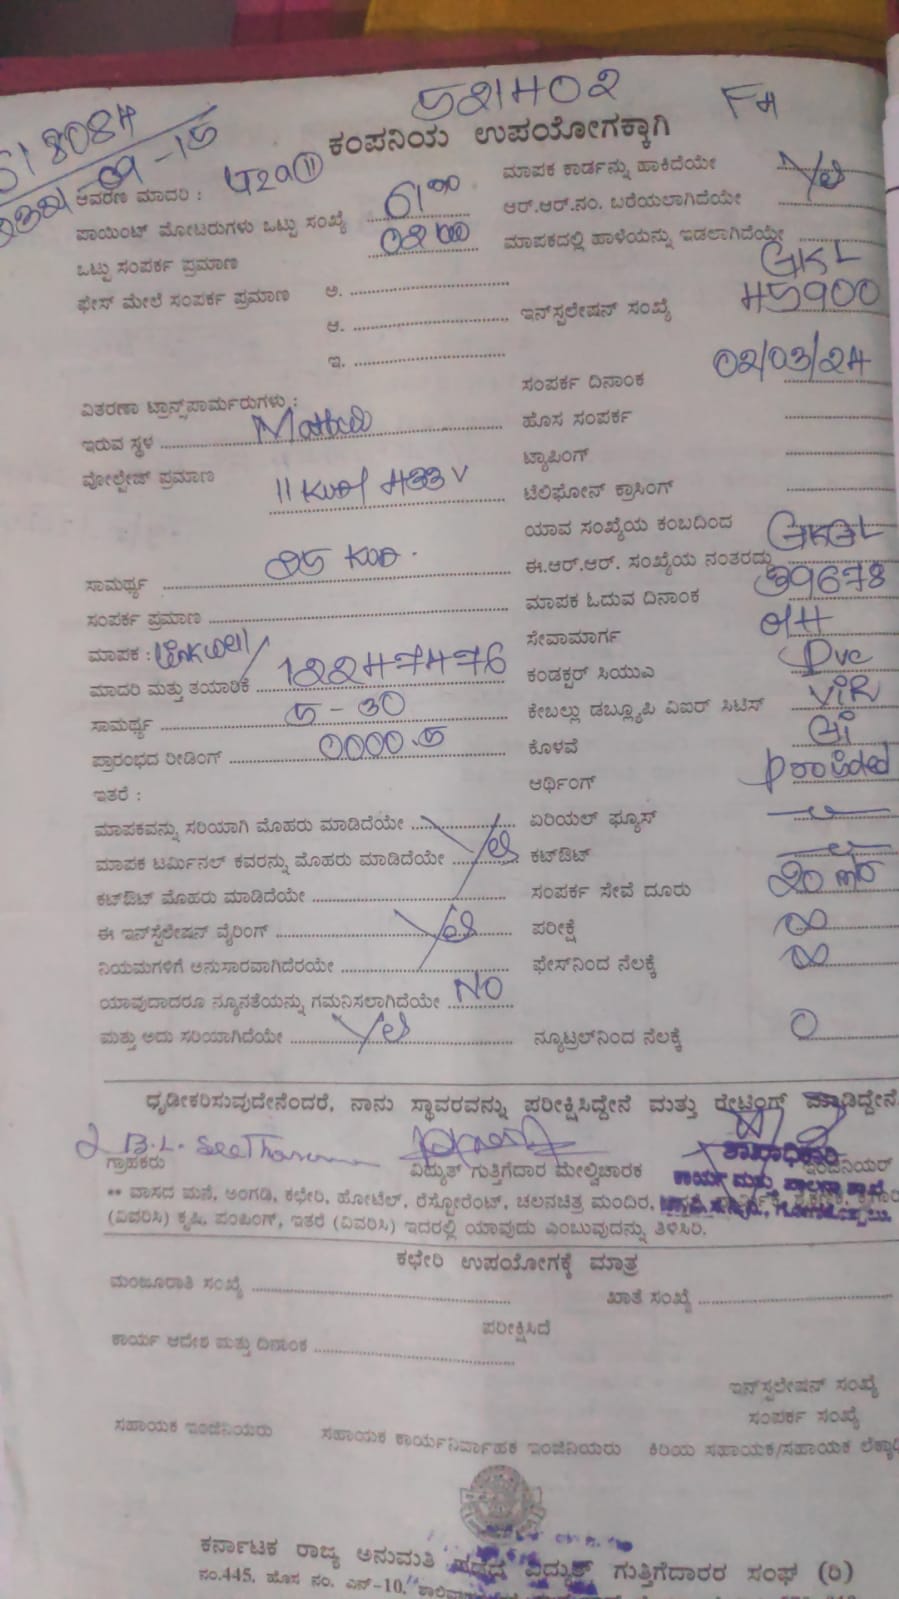 521402
F4
518084
09-15
ಕಂಪನಿಯ ಉಪಯೋಗಕ್ಕಾಗಿ
ಆವರಣ ಮಾದರಿ :
ಮಾಪಕ ಕಾರ್ಡನ್ನು ಹಾಕಿದೆಯೇ Yes
ಪಾಯಿಂಟ್ ಮೋಟರುಗಳು ಒಟ್ಟು ಸಂಖ್ಯೆ
ಆರ್.ಆರ್.ನಂ. ಬರೆಯಲಾಗಿದೆಯೇ
ಒಟ್ಟು ಸಂಪರ್ಕ ಪ್ರಮಾಣ
ಮಾಪಕದಲ್ಲಿ ಹಾಳೆಯನ್ನು ಇಡಲಾಗಿದೆಯೇ
ಫೇಸ್ ಮೇಲೆ ಸಂಪರ್ಕ ಪ್ರಮಾಣ ಅ.
GKL
ಆ.
ಇನ್‌ಸ್ಟಲೇಷನ್ ಸಂಖ್ಯೆ 45900
ಇ.
ಸಂಪರ್ಕ ದಿನಾಂಕ 02/03/24
ವಿತರಣಾ ಟ್ರಾನ್ಸ್‌ಪಾರ್ಮರುಗಳು :
ಇರುವ ಸ್ಥಳ
ಹೊಸ ಸಂಪರ್ಕ
ವೋಲ್ಟೇಜ್ ಪ್ರಮಾಣ
ಟ್ಯಾಪಿಂಗ್
433 V
ಟೆಲಿಫೋನ್ ಕ್ರಾಸಿಂಗ್
ಯಾವ ಸಂಖ್ಯೆಯ ಕಂಬದಿಂದ
ಸಾಮರ್ಥ್ಯ 25
ಈ.ಆರ್.ಆರ್. ಸಂಖ್ಯೆಯ ನಂತರದ್ದು 39678
ಸಂಪರ್ಕ ಪ್ರಮಾಣ
ಮಾಪಕ ಓದುವ ದಿನಾಂಕ
ಮಾಪಕ :
ಸೇವಾಮಾರ್ಗ O/H
ಮಾದರಿ ಮತ್ತು ತಯಾರಿಕೆ 12247476
ಕಂಡಕ್ಟರ್ ಸಿಯುಎ Pvc
ಸಾಮರ್ಥ್ಯ 5-30
ಕೇಬಲ್ಲು ಡಬ್ಲ್ಯೂಪಿ ವಿಐರ್ ಸಿಟಿಸ್ ViR
ಪ್ರಾರಂಭದ ರೀಡಿಂಗ್ 0000.5
ಕೊಳವೆ Gi
ಇತರೆ :
ಆರ್ಥಿಂಗ್ provided
ಮಾಪಕವನ್ನು ಸರಿಯಾಗಿ ಮೊಹರು ಮಾಡಿದೆಯೇ
ಏರಿಯಲ್ ಫ್ಯೂಸ್
ಮಾಪಕ ಟರ್ಮಿನಲ್ ಕವರನ್ನು ಮೊಹರು ಮಾಡಿದೆಯೇ Yes
ಕಟ್‌ಔಟ್
ಕಟ್‌ಔಟ್ ಮೊಹರು ಮಾಡಿದೆಯೇ
ಸಂಪರ್ಕ ಸೇವೆ ದೂರು 20
ಈ ಇನ್‌ಸ್ಟಲೇಷನ್ ವೈರಿಂಗ್ Yes
ಪರೀಕ್ಷೆ ∞
ನಿಯಮಗಳಿಗೆ ಅನುಸಾರವಾಗಿದೆರಯೇ
ಫೇಸ್‌ನಿಂದ ನೆಲಕ್ಕೆ ∞
ಯಾವುದಾದರೂ ನ್ಯೂನತೆಯನ್ನು ಗಮನಿಸಲಾಗಿದೆಯೇ NO
ಮತ್ತು ಅದು ಸರಿಯಾಗಿದೆಯೇ Yes
ನ್ಯೂಟ್ರಲ್‌ನಿಂದ ನೆಲಕ್ಕೆ 0
ಧೃಡೀಕರಿಸುವುದೇನೆಂದರೆ, ನಾನು ಸ್ಥಾವರವನ್ನು ಪರೀಕ್ಷಿಸಿದ್ದೇನೆ ಮತ್ತು ರೇಟಿಂಗ್ ಮಾಡಿದ್ದೇನೆ
B.L. Seetharam
ಶಾಖಾಧಿಕಾರಿ
ಗ್ರಾಹಕರು
ವಿದ್ಯುತ್ ಗುತ್ತಿಗೆದಾರ ಮೇಲ್ವಿಚಾರಕ
ಇಂಜಿನಿಯರ್
** ವಾಸದ ಮನೆ, ಅಂಗಡಿ, ಕಛೇರಿ, ಹೋಟೆಲ್, ರೆಸ್ಟೋರೆಂಟ್, ಚಲನಚಿತ್ರ ಮಂದಿರ,
(ವಿವರಿಸಿ) ಕೃಷಿ, ಪಂಪಿಂಗ್, ಇತರೆ (ವಿವರಿಸಿ) ಇದರಲ್ಲಿ ಯಾವುದು ಎಂಬುವುದನ್ನು ತಿಳಿಸಿರಿ.
ಕಛೇರಿ ಉಪಯೋಗಕ್ಕೆ ಮಾತ್ರ
ಮಂಜೂರಾತಿ ಸಂಖ್ಯೆ
ಖಾತೆ ಸಂಖ್ಯೆ
ಪರೀಕ್ಷಿಸಿದೆ
ಕಾರ್ಯ ಆದೇಶ ಮತ್ತು ದಿನಾಂಕ
ಇನ್‌ಸ್ಟಲೇಷನ್ ಸಂಖ್ಯೆ
ಸಂಪರ್ಕ ಸಂಖ್ಯೆ
ಸಹಾಯಕ ಇಂಜಿನಿಯರು
ಸಹಾಯಕ ಕಾರ್ಯನಿರ್ವಾಹಕ ಇಂಜಿನಿಯರು
ಕಿರಿಯ ಸಹಾಯಕ/ಸಹಾಯಕ
ಕರ್ನಾಟಕ ರಾಜ್ಯ ಅನುಮತಿ ಪಡೆದ ವಿದ್ಯುತ್ ಗುತ್ತಿಗೆದಾರರ ಸಂಘ (ರಿ)
ನಂ.445, ಹೊಸ ನಂ. ಎನ್-10,